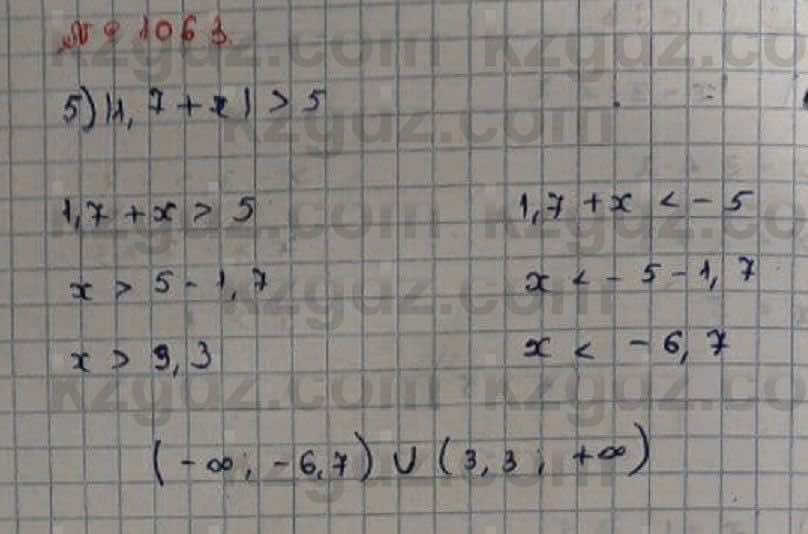 № 1063.
5) |1,7 + x| > 5
1,7 + x > 5
1,7 + x < - 5
x > 5 - 1,7
x < - 5 - 1,7
x > 3,3
x < - 6,7
(- ∞; - 6,7) ∪ (3,3; +∞)
kzgdz.com